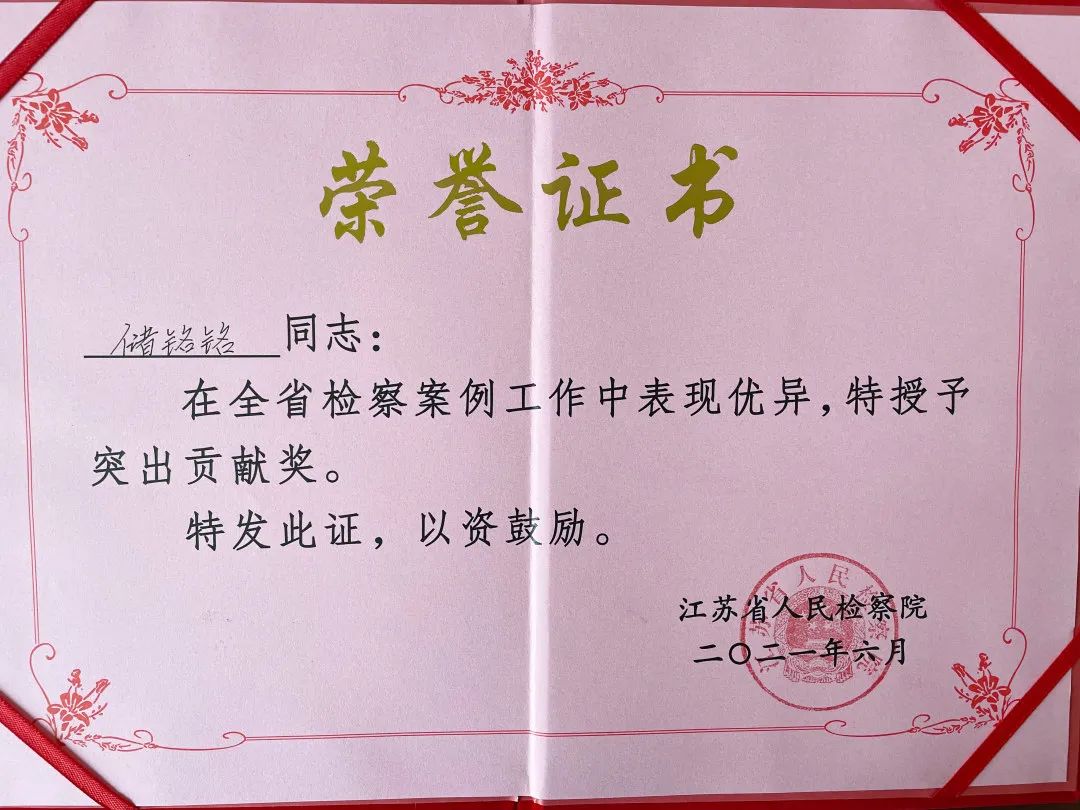 荣誉证书
储铭铭同志：
在全省检察案例工作中表现优异，特授予
突出贡献奖。
特发此证，以资鼓励。
江苏省人民检察院
二〇二一年六月
江苏省人民检察院